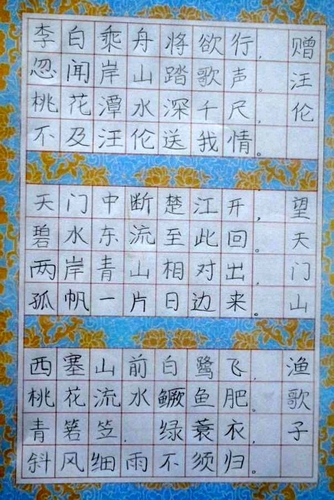 赠汪伦
李白乘舟将欲行,
忽闻岸山踏歌声。
桃花潭水深千尺,
不及汪伦送我情。
望天门山
天门中断楚江开,
碧水东流至此回。
两岸青山相对出,
孤帆一片日边来。
渔歌子
西塞山前白鹭飞,
桃花流水鳜鱼肥。
青箬笠,绿蓑衣,
斜风细雨不须归。